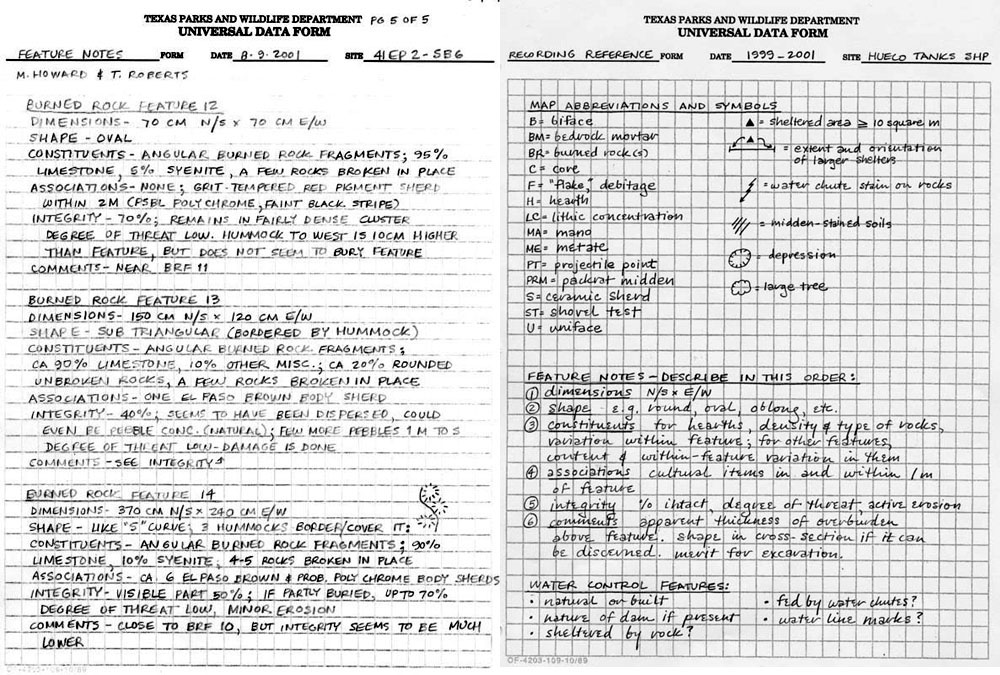 TEXAS PARKS AND WILDLIFE DEPARTMENT PG 5 OF 5
UNIVERSAL DATA FORM
FEATURE NOTES FORM DATE 8-9-2001 SITE 41EP2-SB6
M. HOWARD & T. ROBERTS
BURNED ROCK FEATURE 12
DIMENSIONS- 70 CM N/S x 70 CM E/W
SHAPE - OVAL
CONSTITUENTS - ANGULAR BURNED ROCK FRAGMENTS; 95%
LIMESTONE, 5% SYENITE, A FEW ROCKS BROKEN IN PLACE
ASSOCIATIONS- NONE; GRIT-TEMPERED RED PIGMENT SHERD
WITHIN 2M (PSBL POLYCHROME, FAINT BLACK STRIPE)
INTEGRITY - 70%; REMAINS IN FAIRLY DENSE CLUSTER
DEGREE OF THREAT LOW. HUMMOCK TO WEST IS 10CM HIGHER
THAN FEATURE, BUT DOES NOT SEEM TO BURY FEATURE
COMMENTS- NEAR BRF 11
BURNED ROCK FEATURE 13
DIMENSIONS- 150 CM N/S x 120 CM E/W
SHAPE - SUB TRIANGULAR (BORDERED BY HUMMOCK)
CONSTITUENTS - ANGULAR BURNED ROCK FRAGMENTS;
CA 90% LIMESTONE, 10% OTHER MISC.; CA 20% ROUNDED
UNBROKEN ROCKS, A FEW ROCKS BROKEN IN PLACE
ASSOCIATIONS - ONE EL PASO BROWN BODY SHERD
INTEGRITY - 40%; SEEMS TO HAVE BEEN DISPERSED, COULD
EVEN BE PEBBLE CONC. (NATURAL); FEW MORE PEBBLES 1 M TO S
DEGREE OF THREAT LOW-DAMAGE IS DONE
COMMENTS - SEE INTEGRITY
BURNED ROCK FEATURE 14
DIMENSIONS- 370 CM N/S x 240 CM E/W
SHAPE - LIKE "S" CURVE; 3 HUMMOCKS BORDER/COVER IT:
CONSTITUENTS - ANGULAR BURNED ROCK FRAGMENTS; 90%
LIMESTONE, 10% SYENITE; 4-5 ROCKS BROKEN IN PLACE
ASSOCIATIONS - CA 6 EL PASO BROWN & PROB. POLYCHROME BODY SHERDS
INTEGRITY- VISIBLE PART 50%; IF PARTLY BURIED, UP TO 70%
DEGREE OF THREAT LOW, MINOR EROSION
COMMENTS - CLOSE TO BRF 10, BUT INTEGRITY SEEMS TO BE MUCH
LOWER
OF-4203-109-10/89
TEXAS PARKS AND WILDLIFE DEPARTMENT
UNIVERSAL DATA FORM
RECORDING REFERENCE FORM DATE 1999-2001 SITE HUECO TANKS SHP
MAP ABBREVIATIONS AND SYMBOLS
B = biface
BM= bedrock mortar
BR= burned rock(s)
C = core
F= "flake," debitage
H= hearth
LC= lithic concentration
MA= mano
ME= metate
PT= projectile point
PRM= packrat midden
S= ceramic sherd
ST= shovel test
U= uniface
▲ = sheltered area ≥ 10 square m
= extent and orientation
of larger shelters
= water chute stain on rocks
= midden-stained soils
= depression
= large tree
FEATURE NOTES - DESCRIBE IN THIS ORDER:
① dimensions N/S x E/W
② shape e.g. round, oval, oblong, etc.
③ constituents for hearths, density & type of rocks,
variation within feature; for other features,
content & within-feature variation in them
④ associations cultural items in and within 1m
of feature
⑤ integrity % intact, degree of threat, active erosion
⑥ comments apparent thickness of overburden
above feature. shape in cross-section if it can
be discerned. merit for excavation.
WATER CONTROL FEATURES:
• natural or built
• nature of dam if present
• sheltered by rock?
• fed by water chutes?
• water line marks?
OF-4203-109-10/89